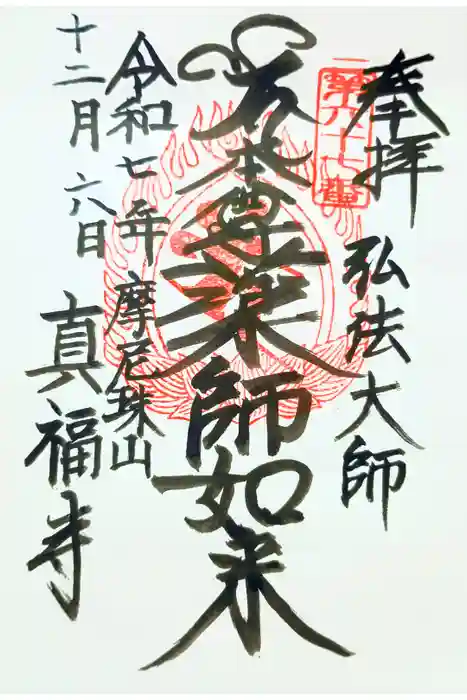 奉拝 弘法大師
第六十七番
本尊薬師如来
令和七年 摩尼珠山
十二月 六日 真福寺